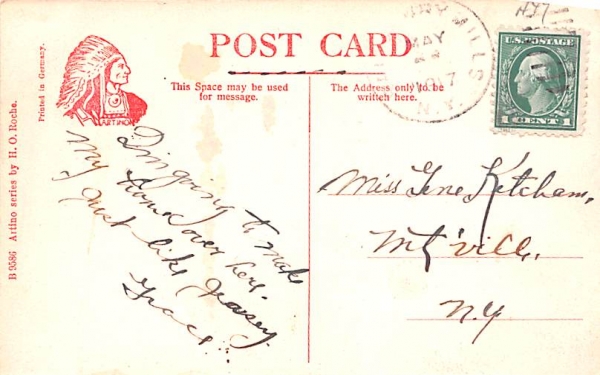 POST CARD
This Space may be used
for message.
The Address only to be
written here.
Printed in Germany.
B 9586 Artino series by H. O. Roche.
ARTINO
MILLS
MAY
1917
N.Y.
U.S. POSTAGE
1 CENT 1
I'm going to make
My home over here.
Just like Jersey
Grace
Miss Gene Ketcham,
Mt ville.
N.Y